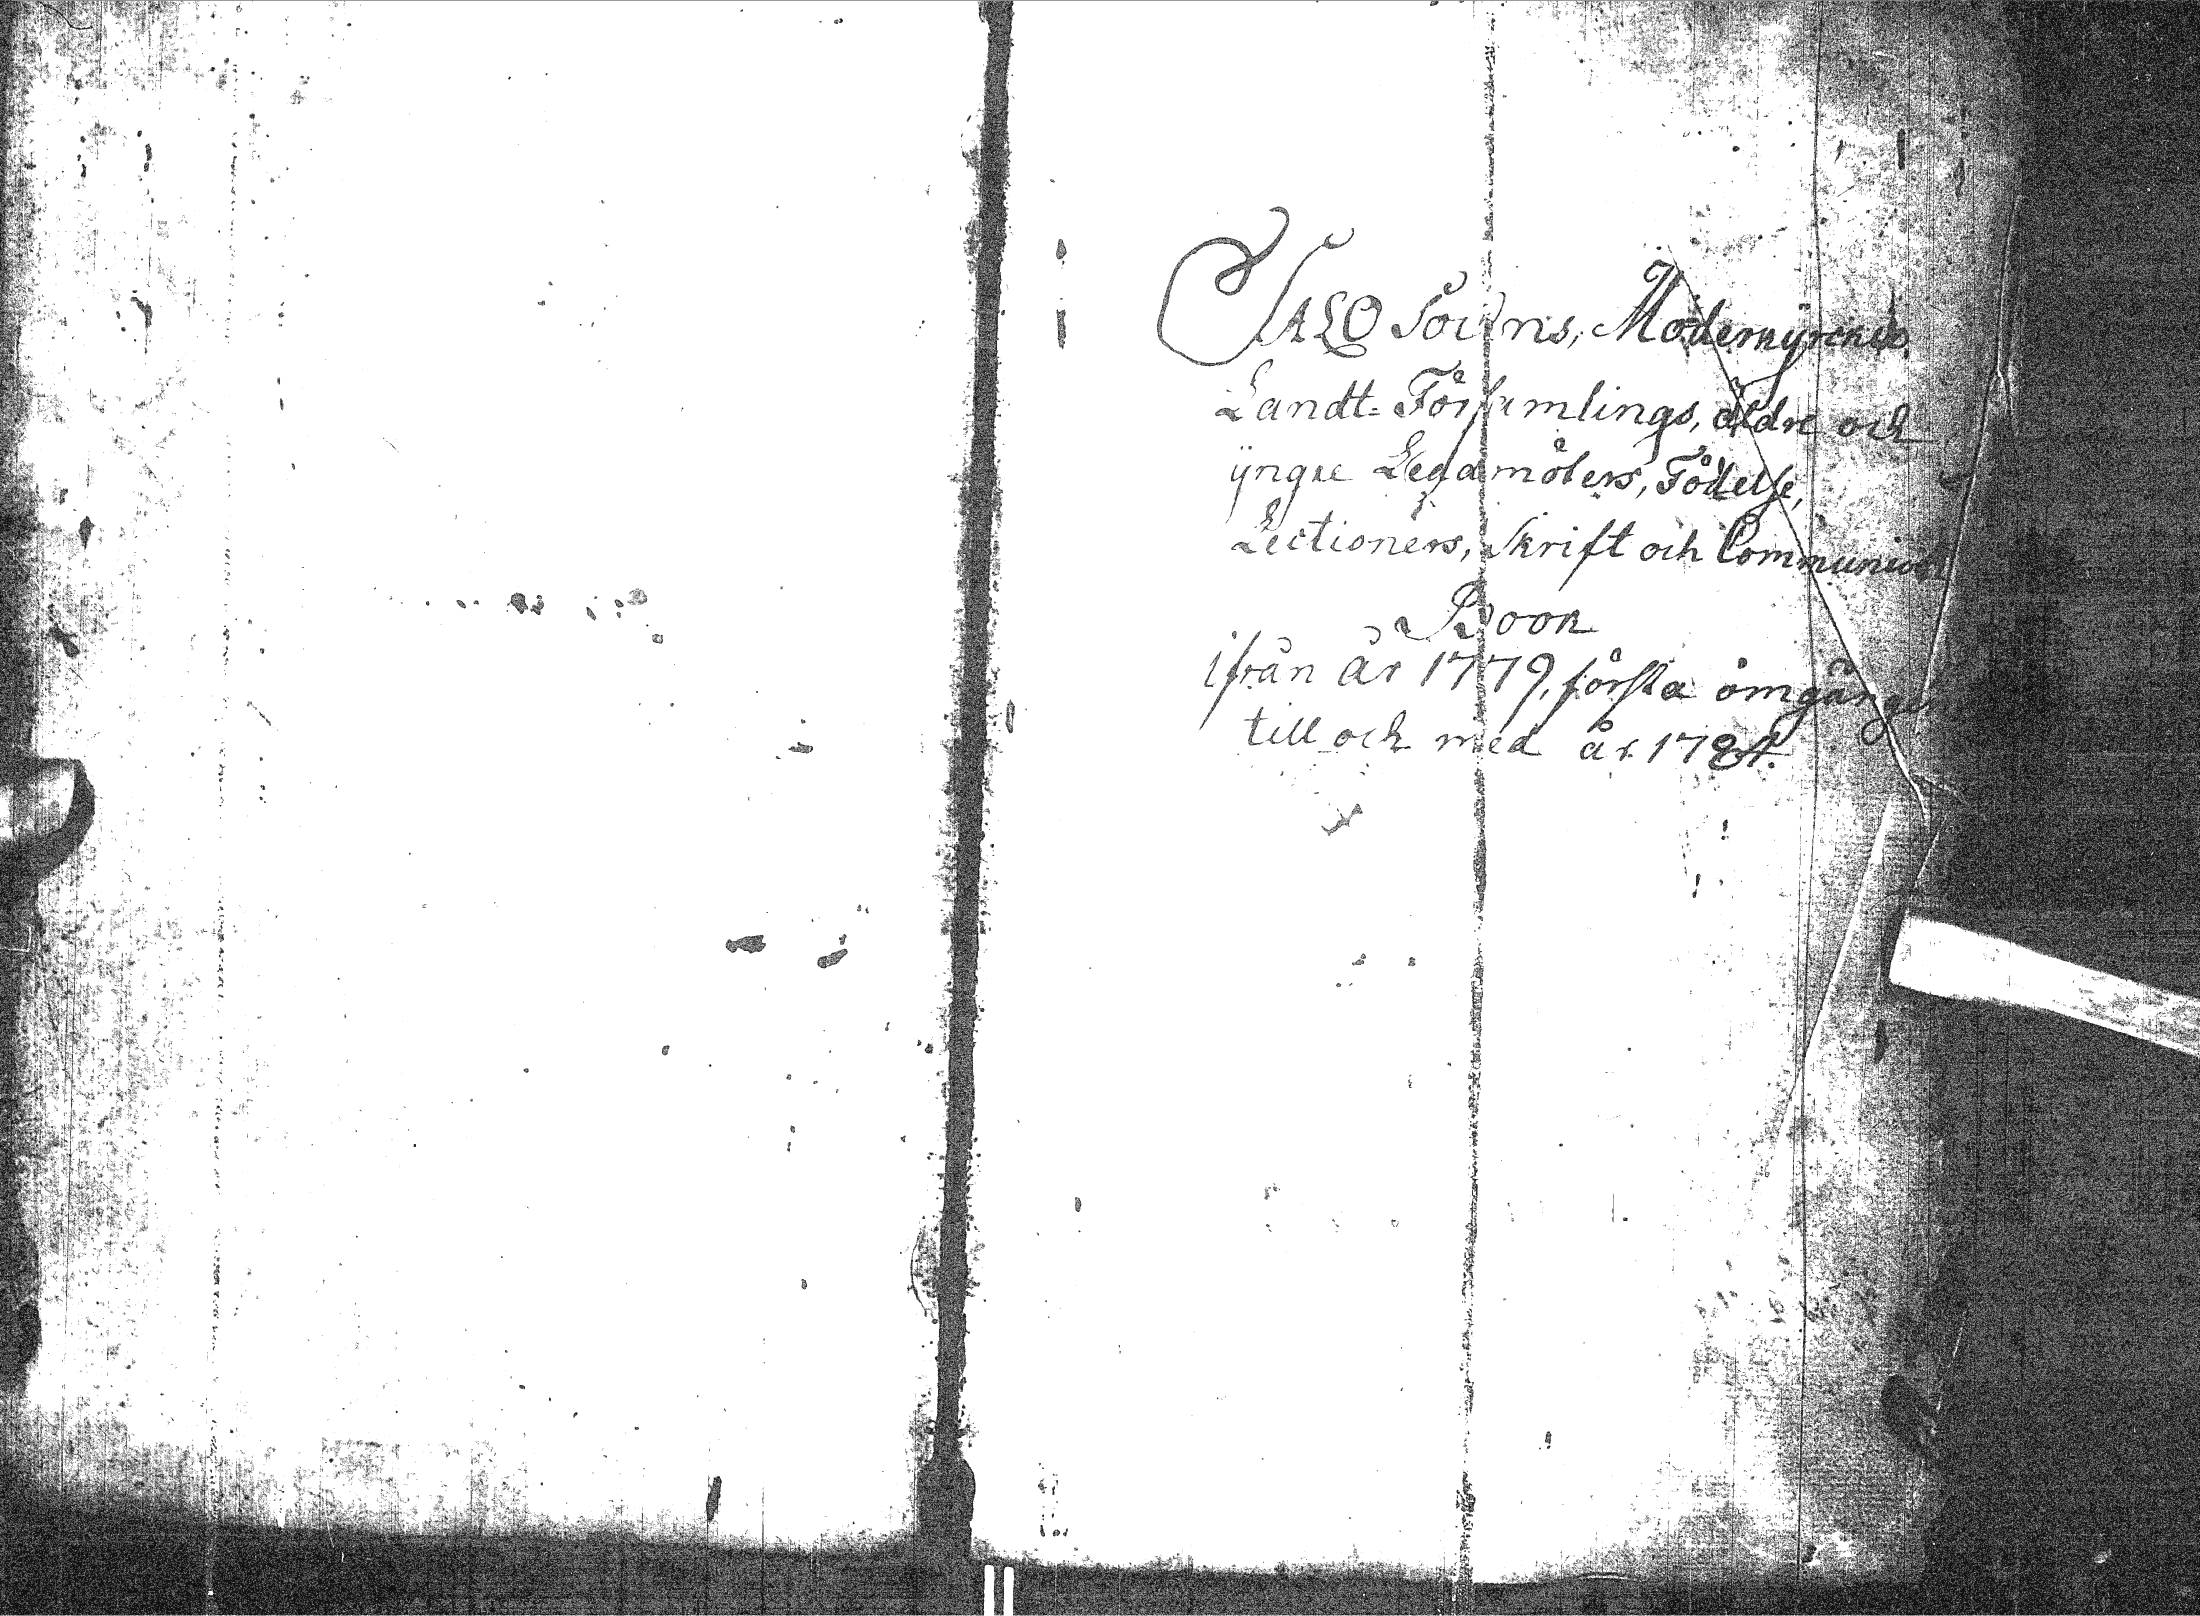 SALO Sockns, Moderkyrckio
Landt-Församlings, äldre och
yngre Ledamöters, Födelse,
Lectioners, Skrift och Communion
Book
ifrån år 1779, första omgången
till och med år 1784.